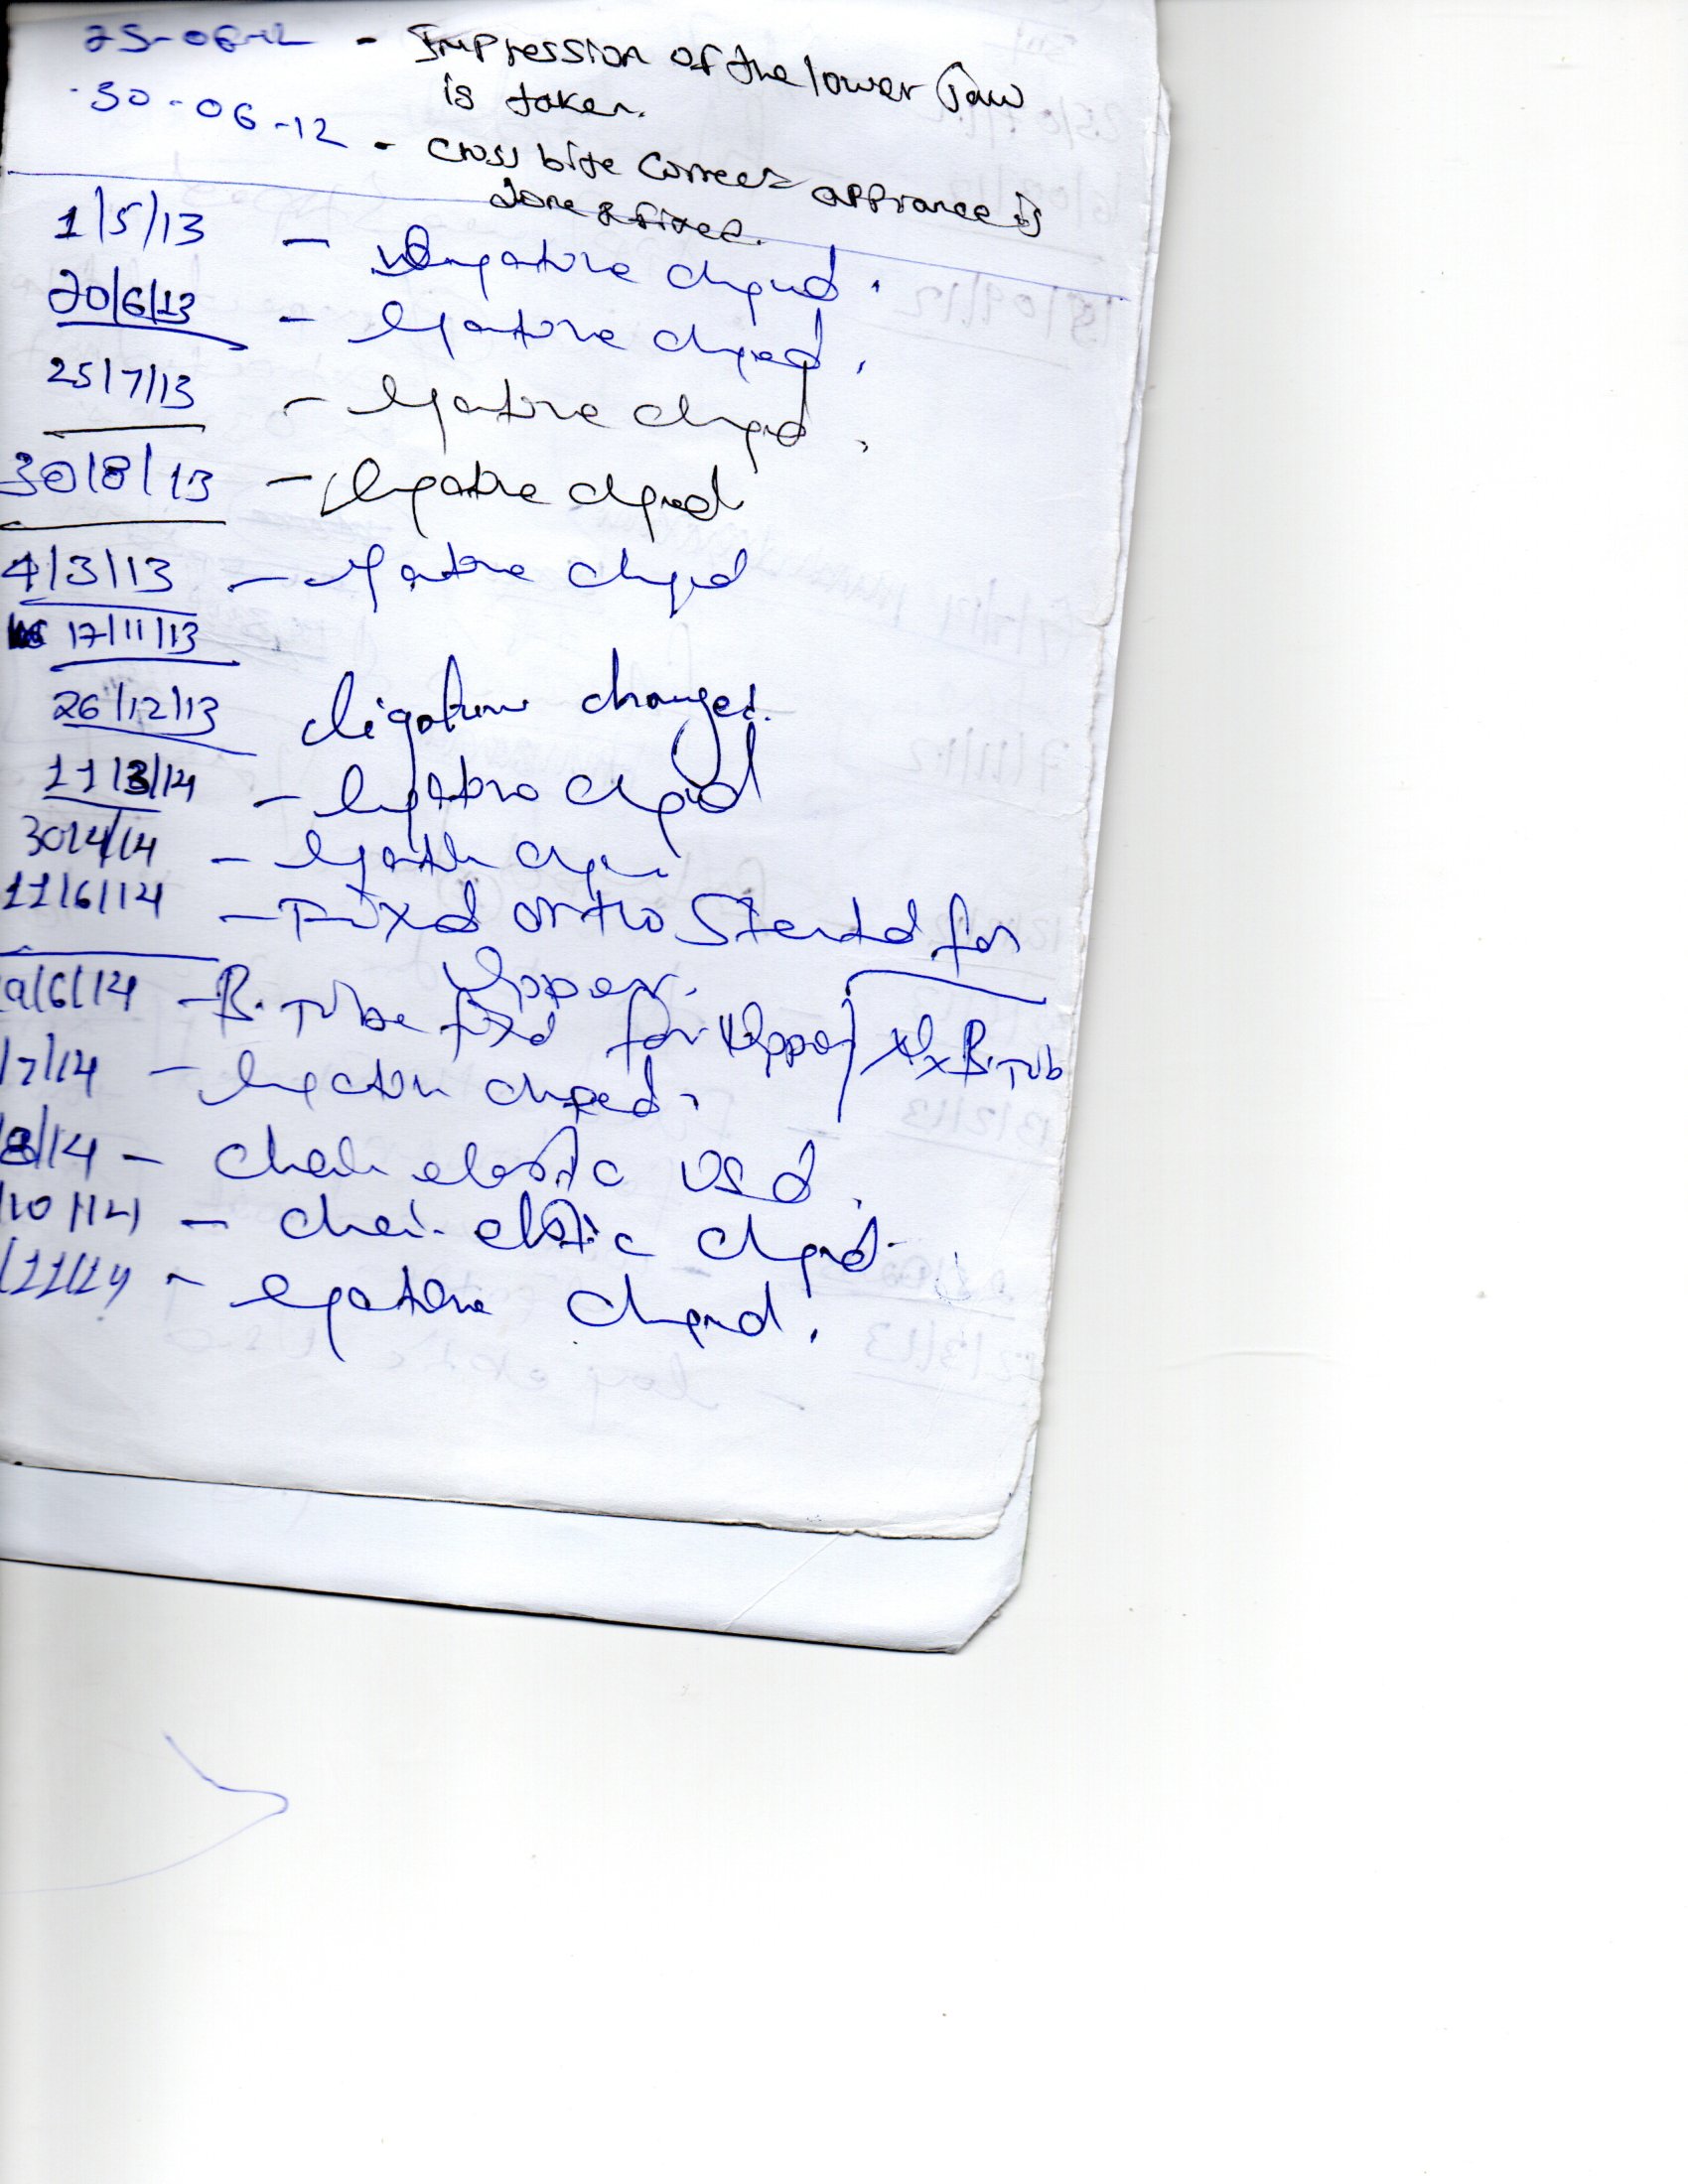 25-06-12 - Impression of the lower Jaw
is taken.
30-06-12 - Cross bite Correct apprance is
done & fixed.
1/5/13 - ligature chgned.
20/6/13 - ligature chgned.
25/7/13 - ligature chgned.
30/8/13 - ligature chgned
4/3/13 - ligature chgned
17/11/13
26/12/13 ligature changed.
11/3/14 - ligature chgned
30/4/14 - ligature
11/6/14 - Fixed ortho Started for
Upper.
9/6/14 - B. Tube fixed for Upper B. Tub
/7/14 - ligature chgned.
8/14 - chain elastic used.
/10/14 - chain elastic chgned.
/11/14 - ligature chgned.